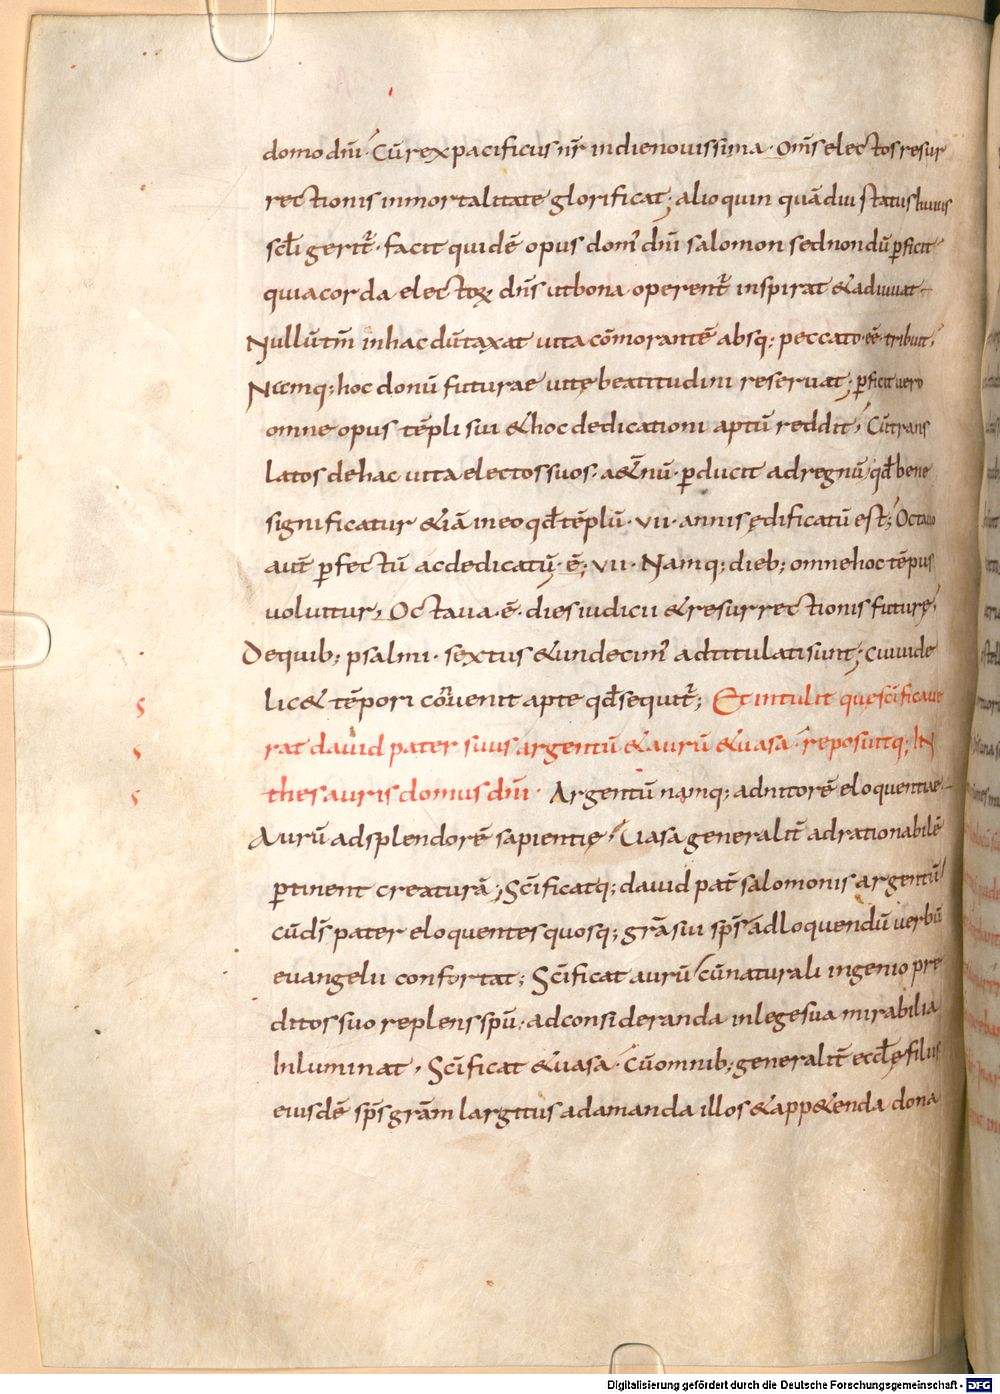 domo dn̄i· Cū rex pacificus nr̄ in die nouissima· Om̄s electos resur
rectionis inmortalitate glorificat; alioquin quādiu status huius
sc̄li geritr̄· facit quidē opus domꝰ dn̄i salomon sed nondū ꝑficit
quia corda electoꝝ dn̄s ut bona operentr̄ inspirat & adiuuat
Nulli tm̄ in hac dūtaxat uita cōmorantē absq; peccato eē tribuit,
Nēmq; hoc donū futurae uitę beatitudini reseruat; ꝑficit uero
omne opus tēpli sui & hoc dedicationi aptū reddit, Cū trans
latos de hac uita electos suos· a&nū· ꝑducit ad regnū qd̄ bene
significatur &iā in eo qd̄ tēplū· VII· annis ędificatū est; Octauo
autē ꝑfectū ac dedicatū· ē; VII· Namq; dieb; omne hoc tēpus
uoluitur, Octaua· ē· dies iudicii & resurrectionis futurę,
De quib; psalmi· sextus & undecimꝰ adtitulati sunt; cui uide
lic& tēpori cōuenit apte qd̄ sequitr̄; Et intulit quę sc̄ificaue
rat dauid pater suus argentū & aurū & uasa reposuitq; IN
thesauris domus dn̄i· Argentū namq; ad nitorē eloquentiae
Aurū ad splendorē sapientię, Uasa generalit̄ ad rationabilē
ꝑtinent creaturā; Sc̄ificatq; dauid pat̄ salomonis argentū
cū ds̄ pater eloquentes quosq; grā sui sp̄s ad loquendū uerbū
euangelii confortat; Sc̄ificat aurū cū naturali ingenio pre
ditos suo replens sp̄u· ad consideranda in lege sua mirabilia
Inluminat, Sc̄ificat & uasa· Cū omnib; generalit̄ eccl̄ę filiis
eiusdē sp̄s grām largitus ad amanda illos & app&enda dona
S
S
S
Digitalisierung gefördert durch die Deutsche Forschungsgemeinschaft - DFG